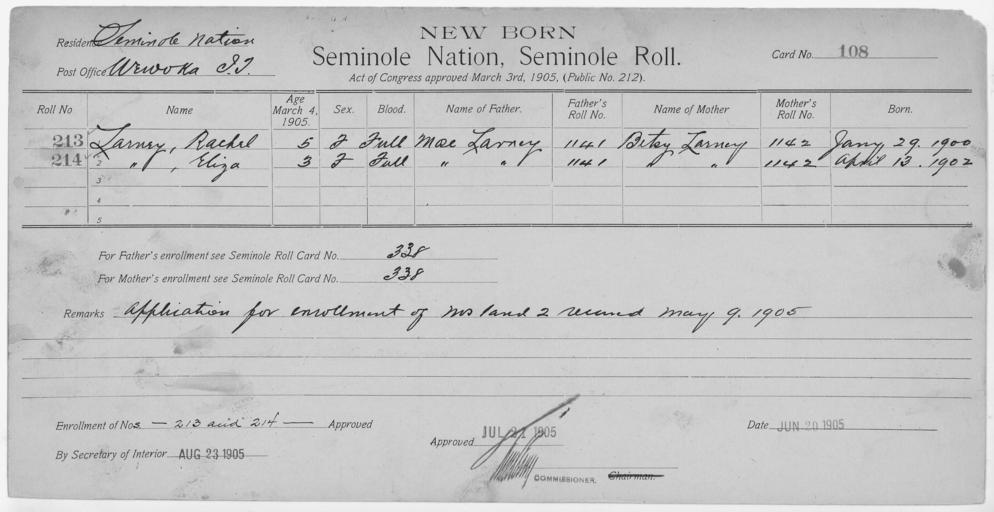 NEW BORN
Residence Seminole Nation
Seminole Nation, Seminole Roll.
Card No. 108
Post Office Wewoka I.T.
Act of Congress approved March 3rd, 1905, (Public No. 212).
Roll No Name Age March 4, 1905. Sex. Blood. Name of Father. Father's Roll No. Name of Mother Mother's Roll No. Born.
213 Larney, Rachel 5 F Full Moe Larney 1141 Betsy Larney 1142 Jany 29. 1900
214 2 " , Eliza 3 F Full " " 1141 " " 1142 April 13. 1902
3
4
5
For Father's enrollment see Seminole Roll Card No. 338
For Mother's enrollment see Seminole Roll Card No. 338
Remarks Application for enrollment of Nos 1 and 2 received May 9. 1905
Enrollment of Nos. — 213 and 214 — Approved
Date JUN 20 1905
Approved JUL 21 1905
By Secretary of Interior AUG 23 1905
COMMISSIONER. Chairman.